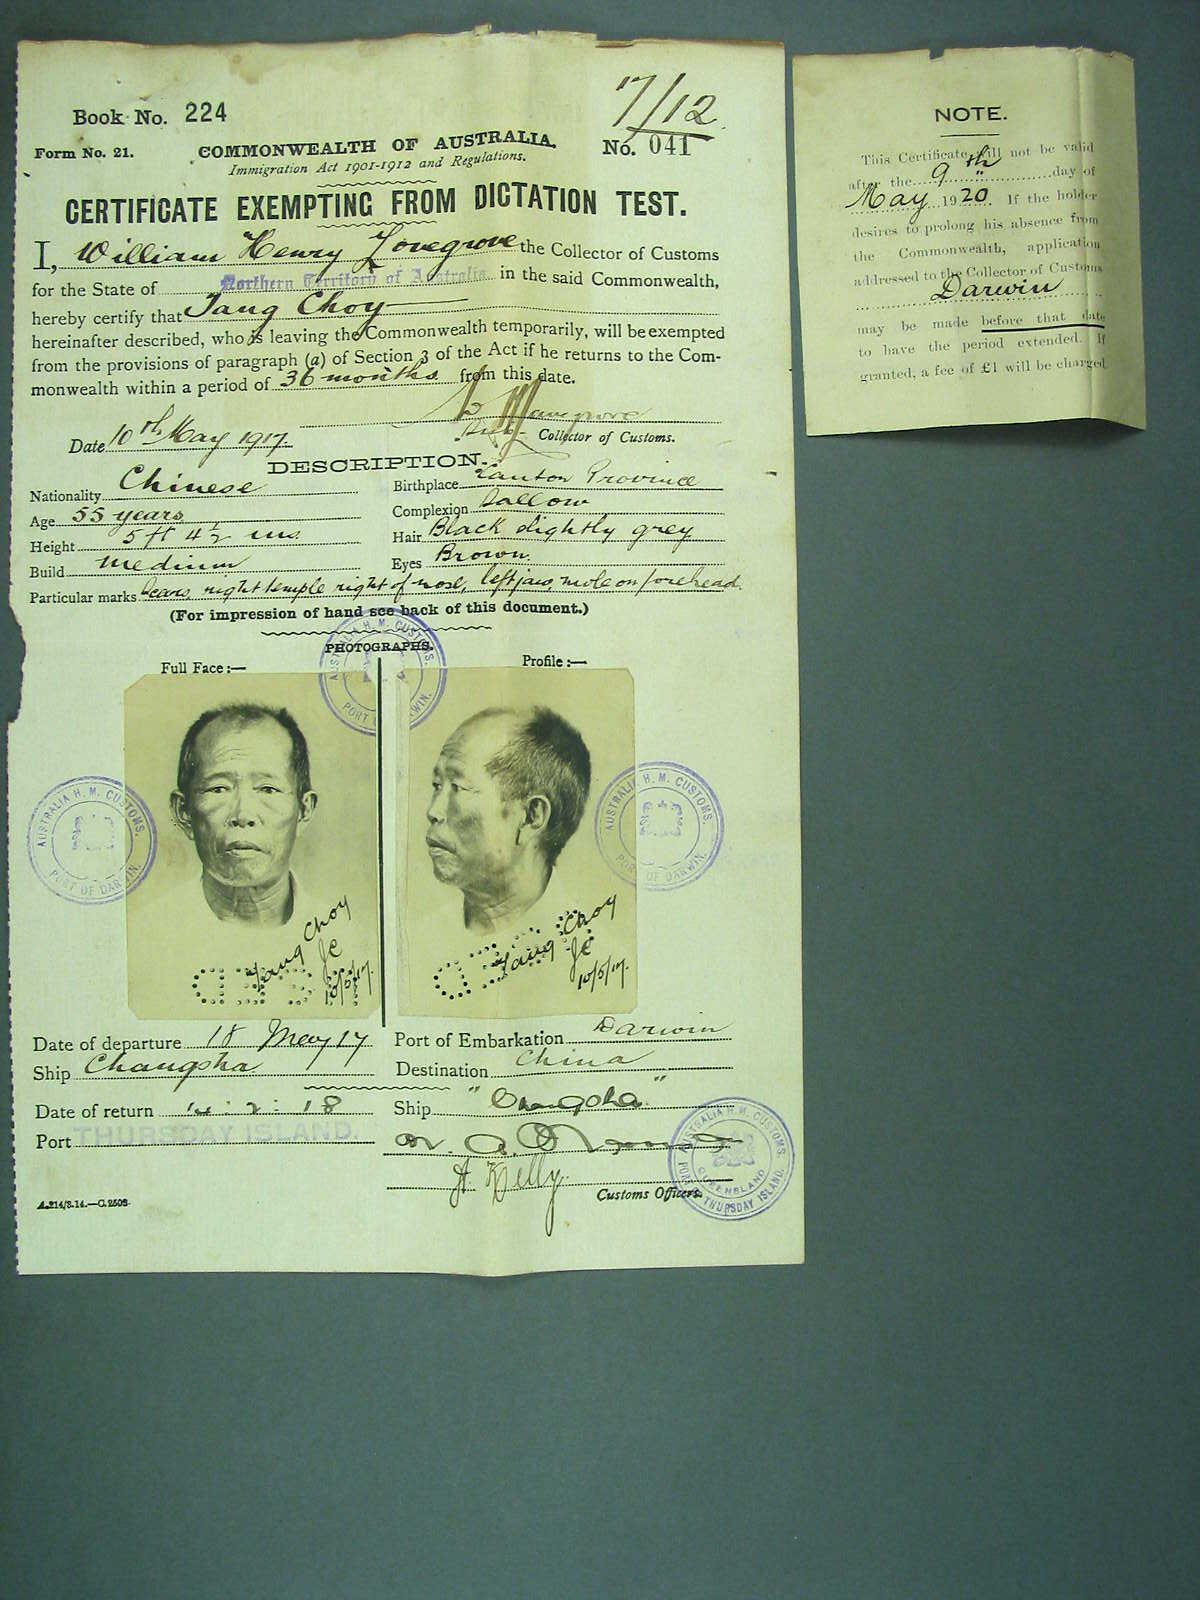 17/12
Book No. 224
Form No. 21.
COMMONWEALTH OF AUSTRALIA.
No. 041
Immigration Act 1901-1912 and Regulations.
CERTIFICATE EXEMPTING FROM DICTATION TEST.
I, William Henry Lovegrove the Collector of Customs
for the State of Northern Territory of Australia in the said Commonwealth,
hereby certify that Tang Choy
hereinafter described, who is leaving the Commonwealth temporarily, will be exempted
from the provisions of paragraph (a) of Section 3 of the Act if he returns to the Com-
monwealth within a period of 36 months from this date.
Date 10th May 1917
Collector of Customs.
DESCRIPTION.
Nationality Chinese
Birthplace Canton Province
Age 55 years
Complexion Sallow
Height 5 ft 4½ ins
Hair Black slightly grey
Build medium
Eyes Brown.
Particular marks Scars, right temple right of nose, left jaw, mole on forehead.
(For impression of hand see back of this document.)
PHOTOGRAPHS.
Full Face:—
Profile:—
AUSTRALIA H. M. CUSTOMS.
PORT OF DARWIN.
AUSTRALIA H. M. CUSTOMS.
PORT OF DARWIN.
AUSTRALIA H. M. CUSTOMS.
PORT OF DARWIN.
Tang Choy
JC
10/5/17.
Tang Choy
JC
10/5/17.
Date of departure 18 May 17
Port of Embarkation Darwin
Ship Changsha
Destination China
Date of return 14 : 2 : 18
Ship "Changsha"
Port THURSDAY ISLAND.
A. Kelly.
Customs Officers.
AUSTRALIA H. M. CUSTOMS.
QUEENSLAND
PORT OF THURSDAY ISLAND.
A.214/3.14.—C.2503.
NOTE.
This Certificate will not be valid
after the 9th day of
May 1920. If the holder
desires to prolong his absence from
the Commonwealth, application
addressed to the Collector of Customs
Darwin
may be made before that date
to have the period extended. If
granted, a fee of £1 will be charged.